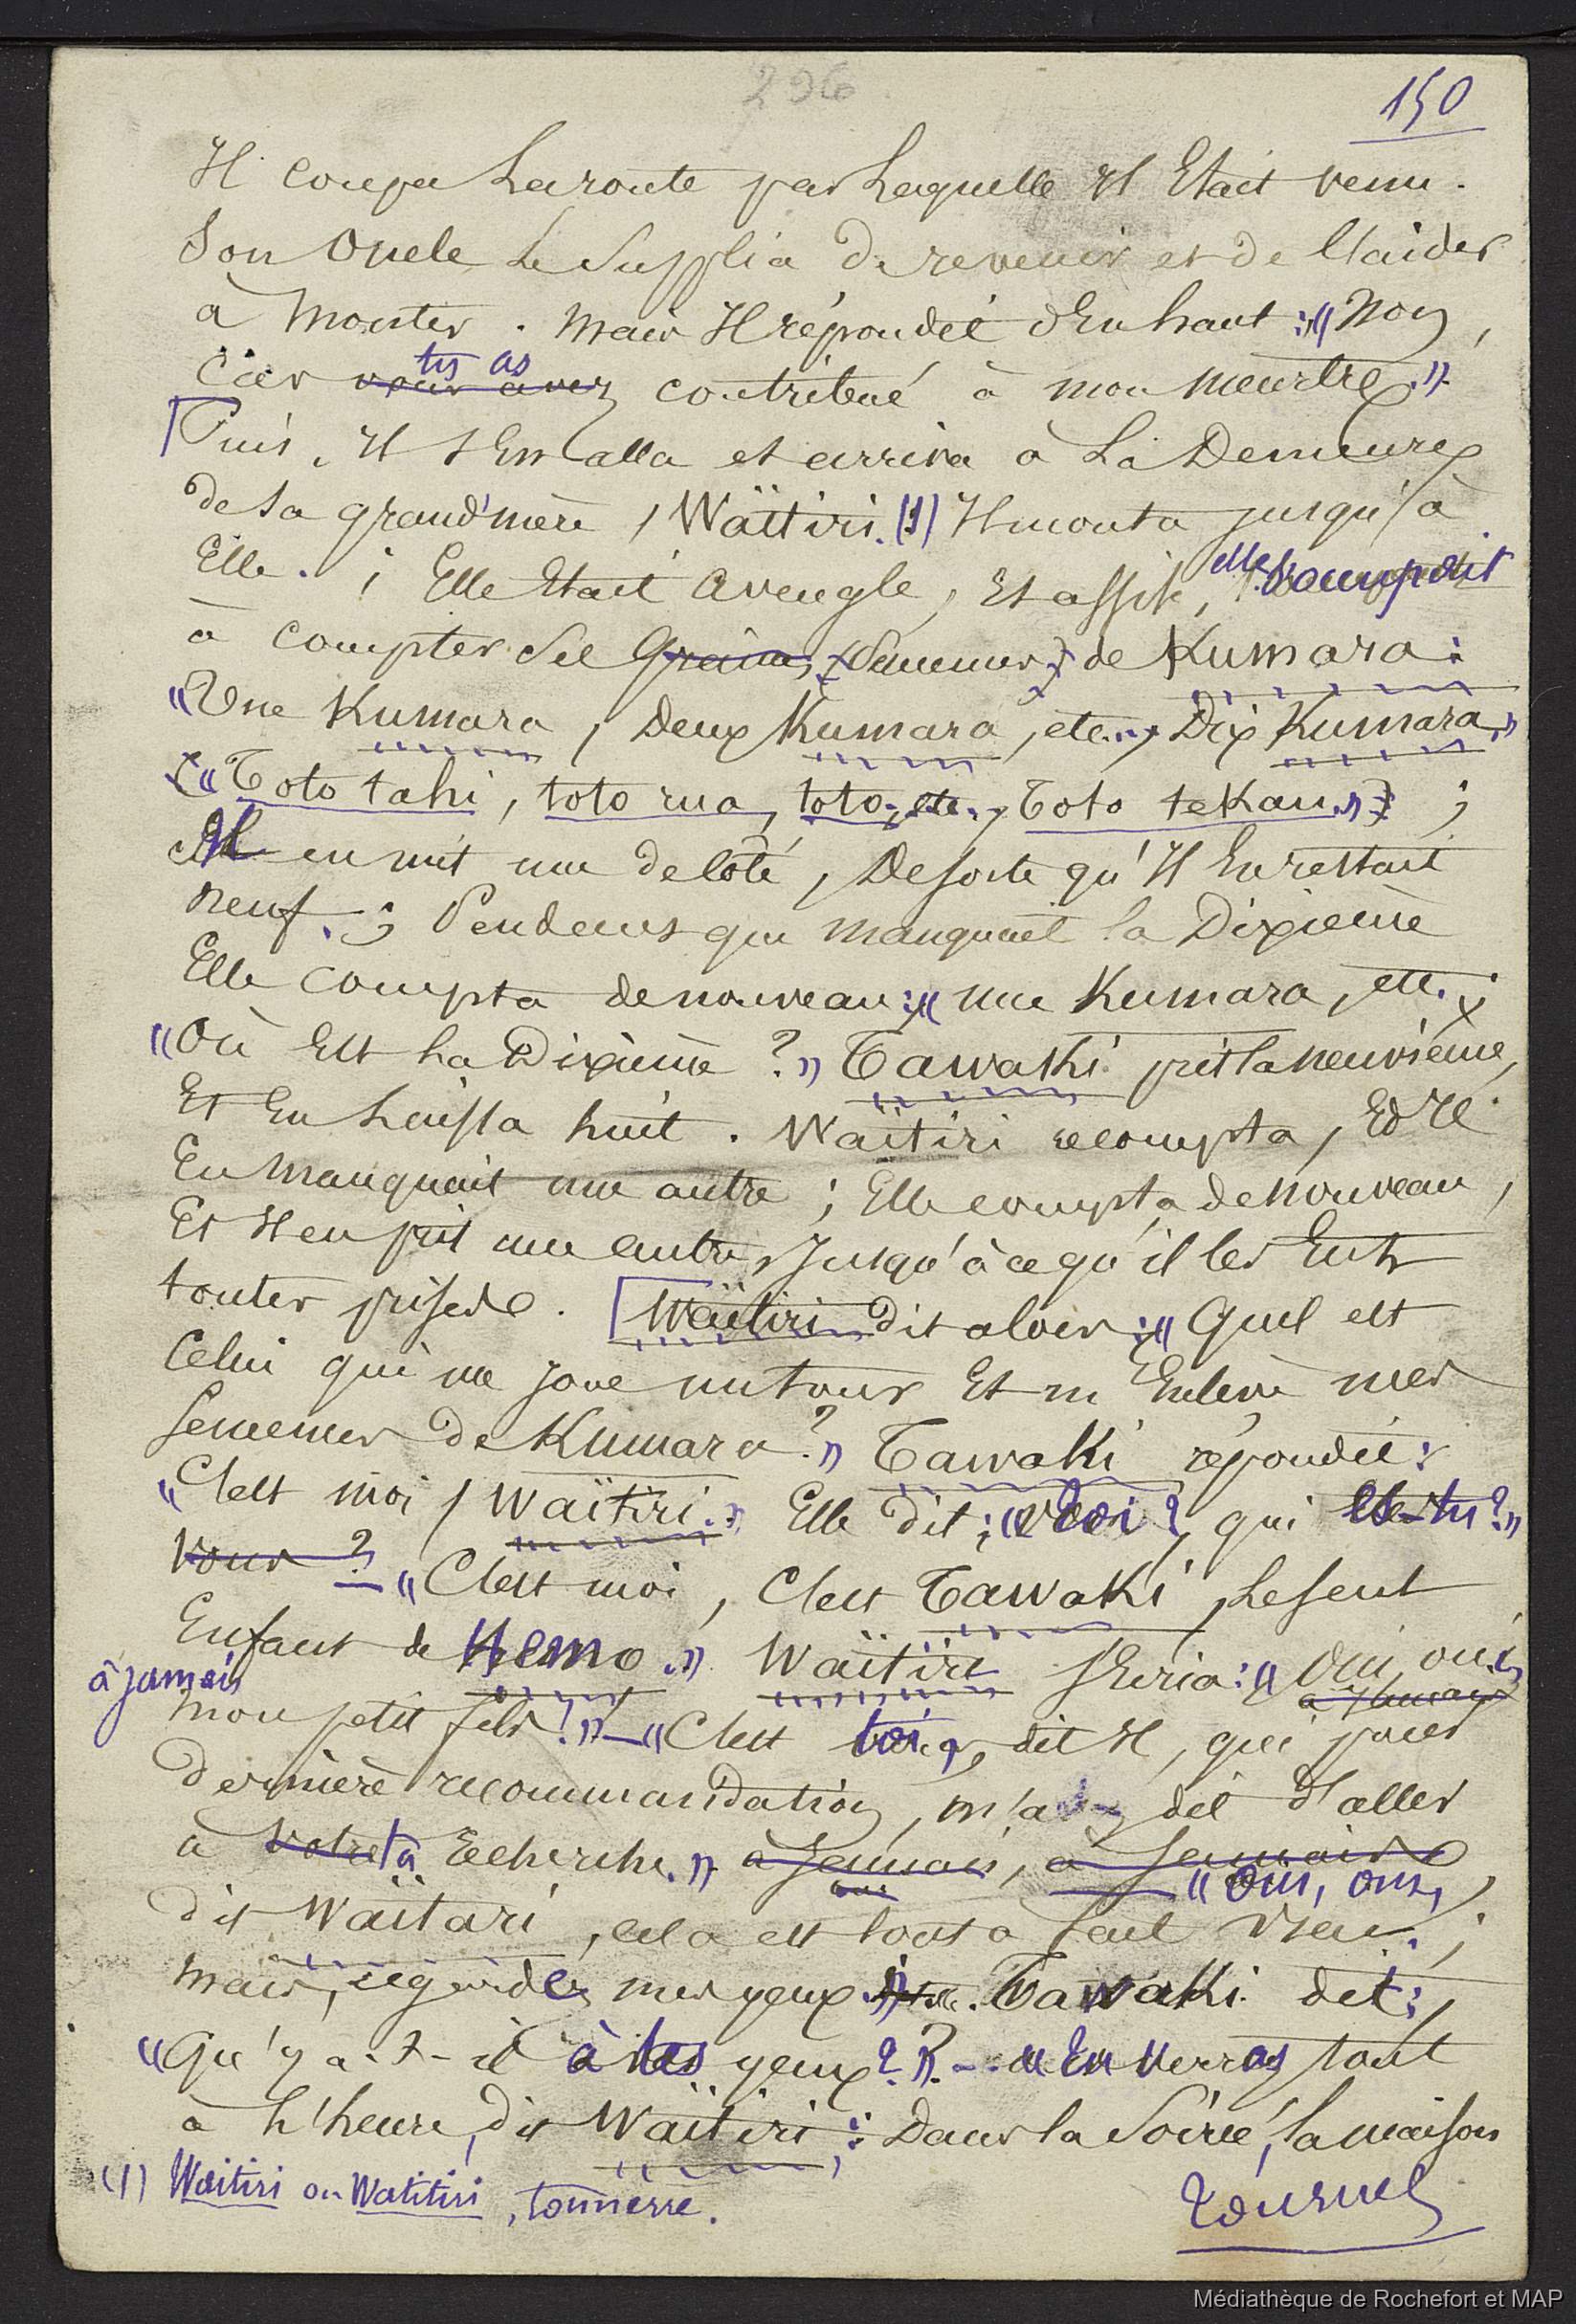 296
150
Il coupa la route par laquelle Il Etait venu.
Son Oncle Le Supplia De revenir et de l'aider
à Monter. Mais Il répondit d'En haut : « Non,
Car vous avez tu as contribué à mon meurtre. »
Puis, Il s'En alla et arriva à La Demeure
de sa grand'mère, Wäïtiri. (1) Il monta jusqu'à
Elle. ; Elle Etait Aveugle, Et assise, elle s'occupait
à compter Six Graines (Semences) de Kumara :
« Une Kumara, Deux Kumara, etc..., Dix Kumara »
(« Toto tahi, toto rua, toto, etc., Toto tekau. ») ;
Il en mit une de côté, De sorte qu'Il En restait
neuf. ; Pendant que manquait la Dixième
Elle Compta de nouveau : « une Kumara, etc. ;
« Où Est La Dixième ? » Tawaki prit la neuvième,
Et En Laissa huit. Wäïtiri recompta, Et Il
En Manquait une autre ; Elle compta de nouveau,
Et Il en prit une autre, Jusqu'à ce qu'il les Eut
toutes prises. Wäïtiri dit alors : « Quel est
Celui qui me joue un tour Et m'Enlève mes
semences de Kumara ? » Tawaki répondit :
« C'est moi, Wäïtiri. » Elle dit : « Toi ? qui Es-tu ? »
vous ? « C'est moi, C'est Tawaki, Le seul
Enfant de Hemo. » Wäïtiri s'écria : « Oui, oui,
à jamais
à jamais
mon petit fils ! » — « C'est toi, dit Il, qui pour
dernière recommandation, m'a dit d'aller
à votre ta recherche. » à Jamais, à Jamais
« Oui, oui,
dit Wäïtari, cela est tout à fait vrai. ;
mais, regarde mes yeux. » Tawaki dit :
« Qu'y a-t-il à tes yeux ? » — « Tu verras tout
à l'heure, dit Wäïtiri : Dans la Soirée, la maison
(1) Waitiri ou Watitiri, tonnerre.
Tournel
Médiathèque de Rochefort et MAP